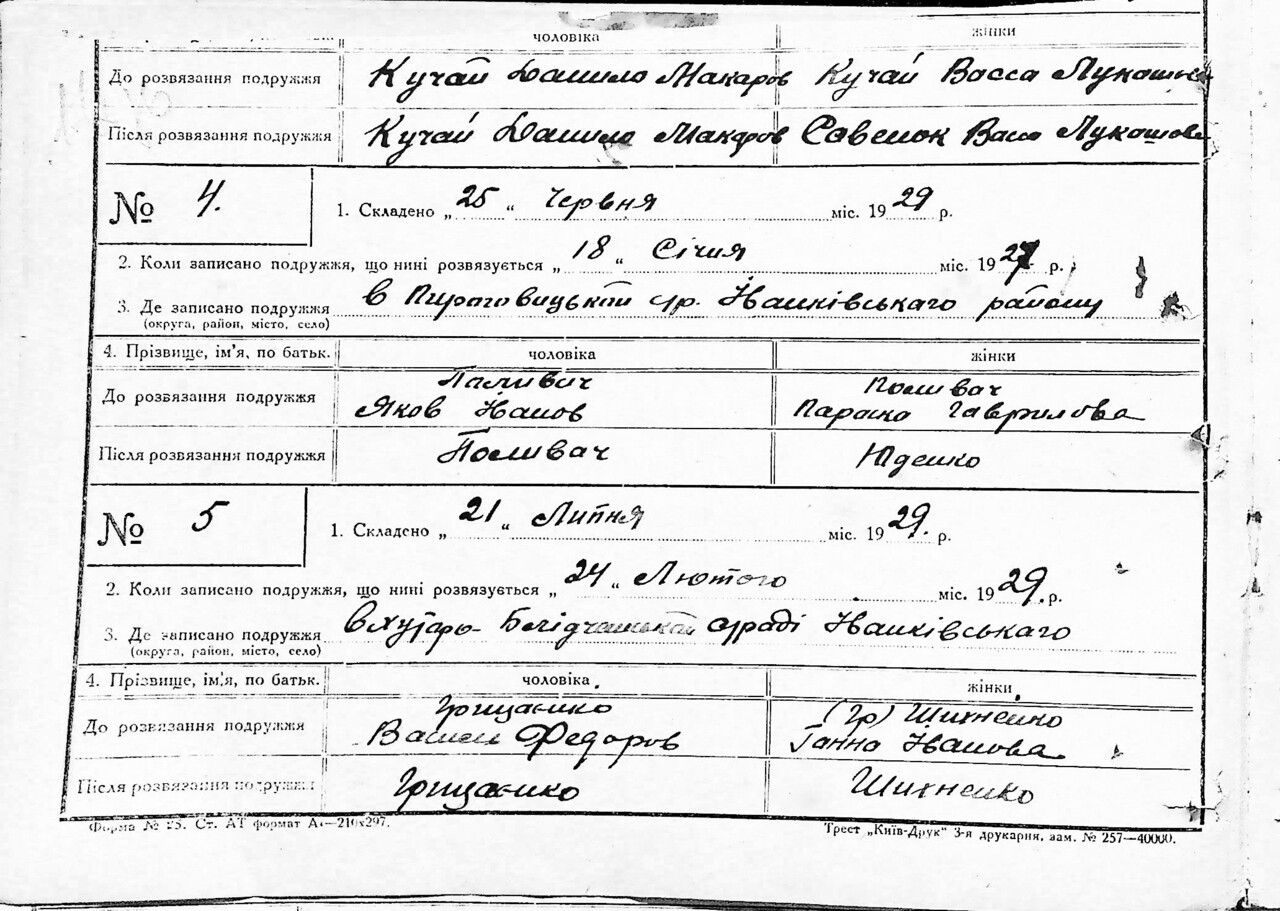 чоловіка жінки
До розвязання подружжя Кучай Данило Макаров Кучай Васса
Після розвязання подружжя Кучай Данило Макаров Савенок Васа Лукашова
№ 4. 1. Складено „ 25 “ Червня міс. 1929 р.
2. Коли записано подружжя, що нині розвязується „ 18 “ Січня міс. 1927 р.
3. Де записано подружжя в с/р. Іванківського району
(округа, район, місто, село)
4. Прізвище, ім'я, по батьк. чоловіка жінки
До розвязання подружжя Поливач Поливач
Яков Іванов Параска Гаврилова
Після розвязання подружжя Поливач Юденко
№ 5 1. Складено „ 21 “ Липня міс. 1929. р.
2. Коли записано подружжя, що нині розвязується „ 24 “ Лютого міс. 1929. р.
3. Де записано подружжя с/раді Іванківського
(округа, район, місто, село)
4. Прізвище, ім'я, по батьк. чоловіка жінки
До розвязання подружжя Грищенко (Гр)
Федоров Ганна Іванова
Після розвязання подружжя Грищенко
Форма № 25. Ст. АТ формат А₄—210х297. Трест „Київ-Друк“ 3-я друкарня, зам. № 257—40000.